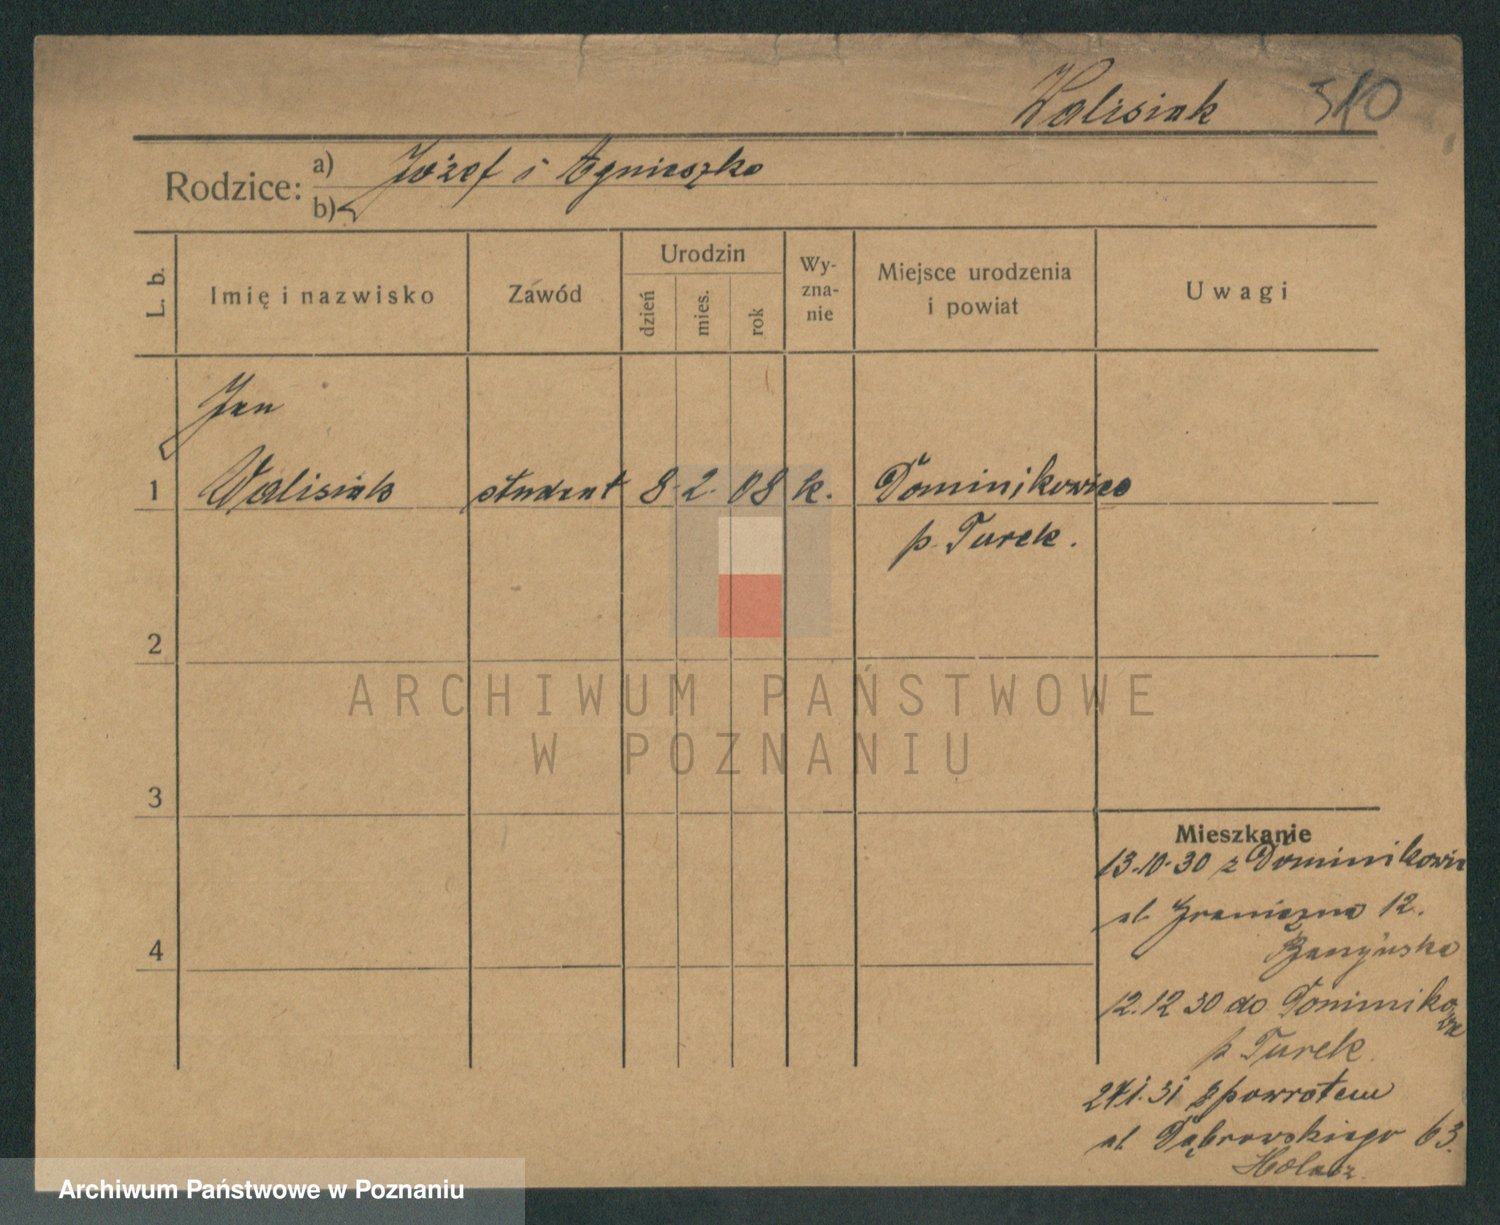 Walisiak 310
Rodzice: a) Józef i Agnieszka
b)
L. b.
Imię i nazwisko
Zawód
Urodzin
dzień
mies.
rok
Wy-
zna-
nie
Miejsce urodzenia
i powiat
Uwagi
Jan
1 Walisiak student 8. 2. 08 k. Dominikowice
p. Turek.
2
3
4
ARCHIWUM PAŃSTWOWE
W POZNANIU
Mieszkanie
13.10.30 z Dominikowic
ul. Graniczna 12.
12.12 30 do Dominikowic
p. Turek.
27.1.31 z powrotem
ul. Dąbrowskiego 63.
Archiwum Państwowe w Poznaniu